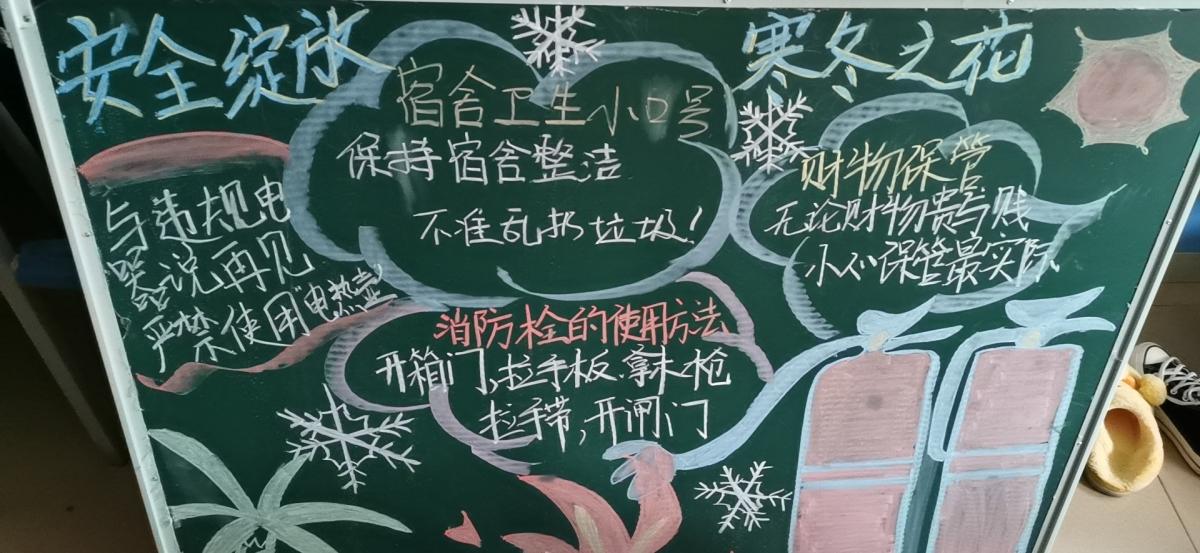 安全绽放
寒冬之花
宿舍卫生小口号
保持宿舍整洁
不准乱扔垃圾！
与违规电
器说再见
严禁使用"电热壶"
财物保管
无论财物贵与贱
小心保管最实际
消防栓的使用方法
开箱门,拉手板.拿水枪
拉手带,开闸门